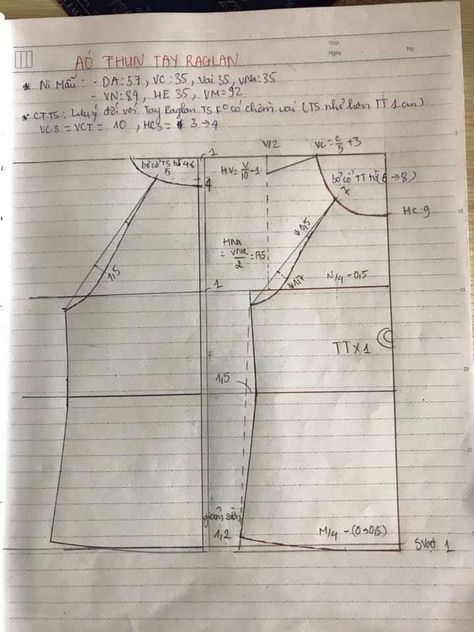 Thứ
Ngày
No:
AÓ THUN TAY RAGLAN
* Ni Mẫu: - DA: 57, VC: 35, Vai 35, vNa: 35
- VN: 84, HE 35, VM = 92
* CTTS: Lưu ý đối với Tay Raglan TS
có chồm vai (TS nhỏ hơn TT 1 cm)
VCS = VCT = 10, HCS = 3 → 4
V/2
VC = C/5 + 3
1
bờ cổ TS từ 4-6
5
4
HV = V/10 - 1
bờ cổ TT từ (6 → 8)
7
HC: 9
0,5
HNa
= vNa/2 =
1,5
1
N/4 - 0,5
TT x 1
1,5
giảm sườn
1,2
M/4 - (0 → 0,5)
SVạt 1